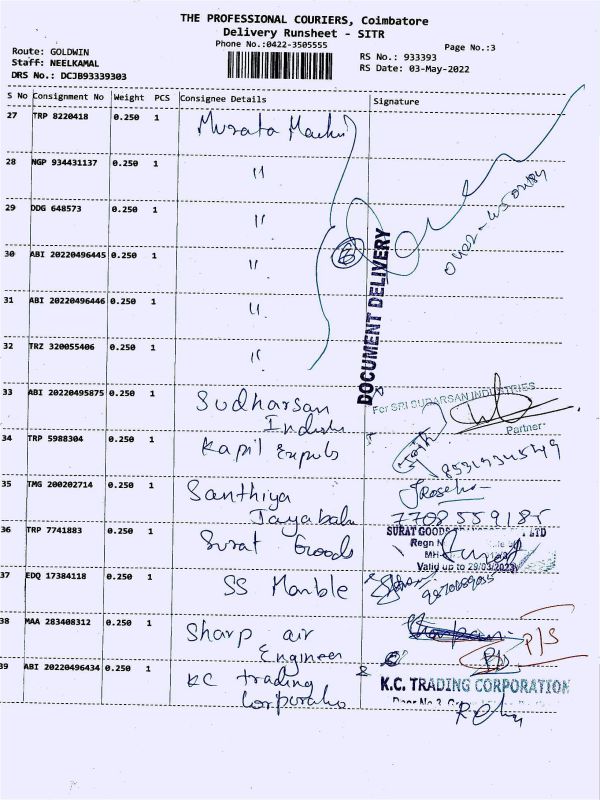 THE PROFESSIONAL COURIERS, Coimbatore
Delivery Runsheet - SITR
Phone No.:0422-3505555
Page No.:3
Route: GOLDWIN
Staff: NEELKAMAL
DRS No.: DCJB93339303
RS No.: 933393
RS Date: 03-May-2022
S No Consignment No Weight PCS Consignee Details Signature
27 TRP 8220418 0.250 1 Murata
28 NGP 934431137 0.250 1 〃
29 DDG 648573 0.250 1 〃
30 ABI 20220496445 0.250 1 〃
31 ABI 20220496446 0.250 1 〃
32 TRZ 320055406 0.250 1 〃
6
DOCUMENT DELIVERY
33 ABI 20220495875 0.250 1 Sudharsan
For SRI SUDARSAN INDUSTRIES
Partner
34 TRP 5988304 0.250 1 Kapil
35 TMG 200202714 0.250 1 Santhiya
Jayabalu
36 TRP 7741883 0.250 1 Surat Goods
SURAT GOODS LTD
Regn N
MH
Valid up to 29/03/2023
37 EDQ 17384118 0.250 1 SS Marble
38 MAA 283408312 0.250 1 Sharp air
Engineer
P/S
39 ABI 20220496434 0.250 1 KC trading
K.C. TRADING CORPORATION